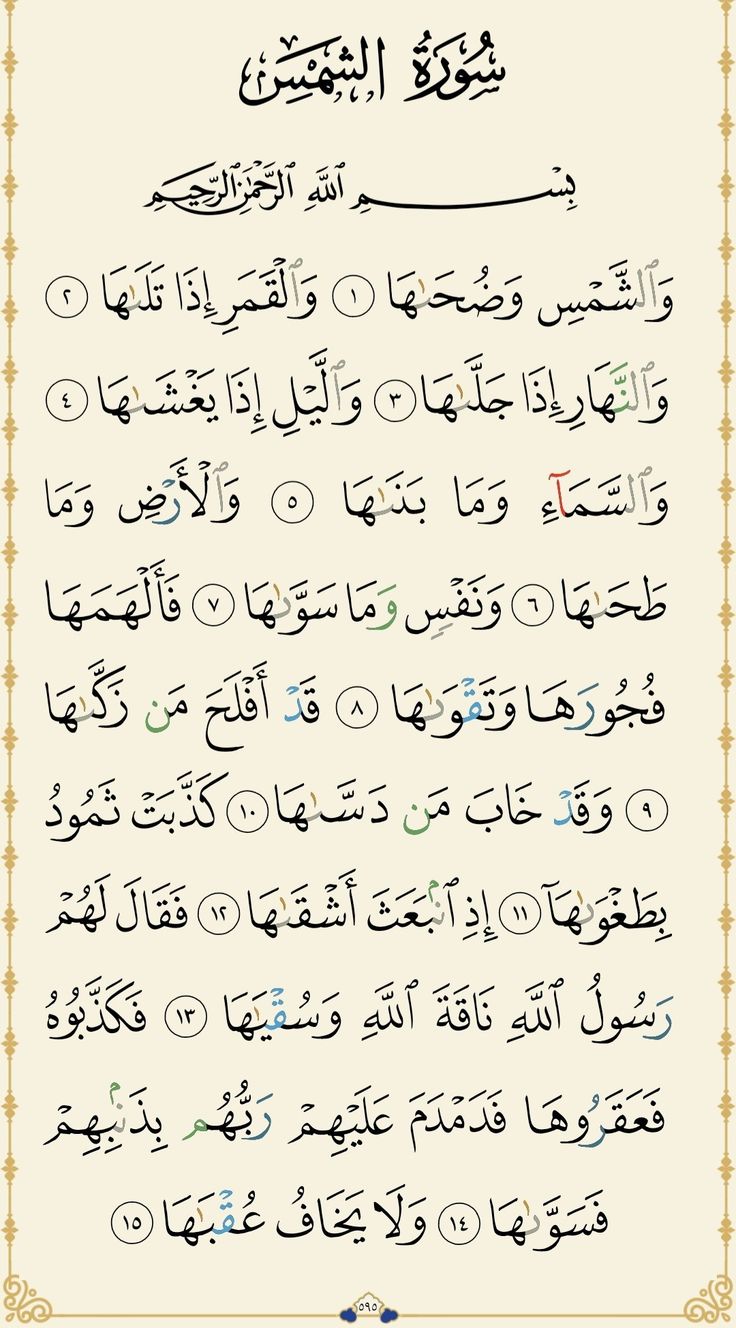 سُورَةُ الشَّمْسِ
بِسْمِ ٱللَّهِ ٱلرَّحْمَٰنِ ٱلرَّحِيمِ
وَٱلشَّمْسِ وَضُحَىٰهَا ١ وَٱلْقَمَرِ إِذَا تَلَىٰهَا ٢
وَٱلنَّهَارِ إِذَا جَلَّىٰهَا ٣ وَٱلَّيْلِ إِذَا يَغْشَىٰهَا ٤
وَٱلسَّمَآءِ وَمَا بَنَىٰهَا ٥ وَٱلْأَرْضِ وَمَا
طَحَىٰهَا ٦ وَنَفْسٍ وَمَا سَوَّىٰهَا ٧ فَأَلْهَمَهَا
فُجُورَهَا وَتَقْوَىٰهَا ٨ قَدْ أَفْلَحَ مَن زَكَّىٰهَا
٩ وَقَدْ خَابَ مَن دَسَّىٰهَا ١٠ كَذَّبَتْ ثَمُودُ
بِطَغْوَىٰهَآ ١١ إِذِ ٱنۢبَعَثَ أَشْقَىٰهَا ١٢ فَقَالَ لَهُمْ
رَسُولُ ٱللَّهِ نَاقَةَ ٱللَّهِ وَسُقْيَٰهَا ١٣ فَكَذَّبُوهُ
فَعَقَرُوهَا فَدَمْدَمَ عَلَيْهِمْ رَبُّهُم بِذَنۢبِهِمْ
فَسَوَّىٰهَا ١٤ وَلَا يَخَافُ عُقْبَٰهَا ١٥
٥٩٥